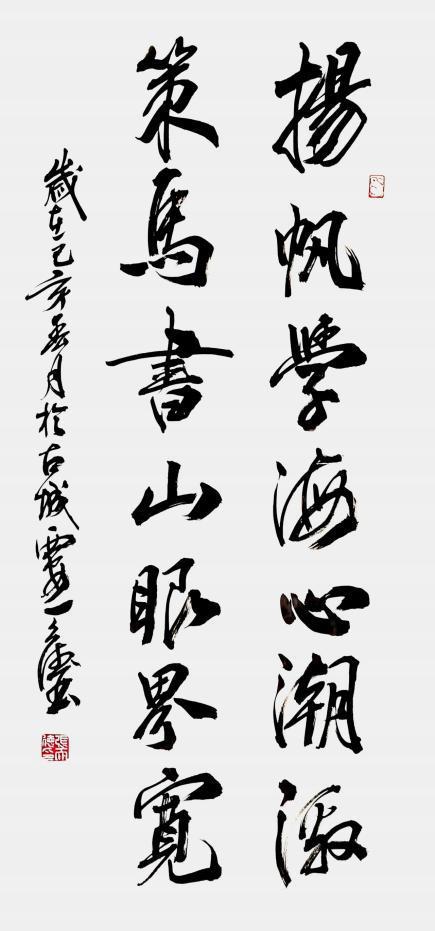 揚帆學海心潮激
策馬書山眼界寬
歲在己亥春月於古城